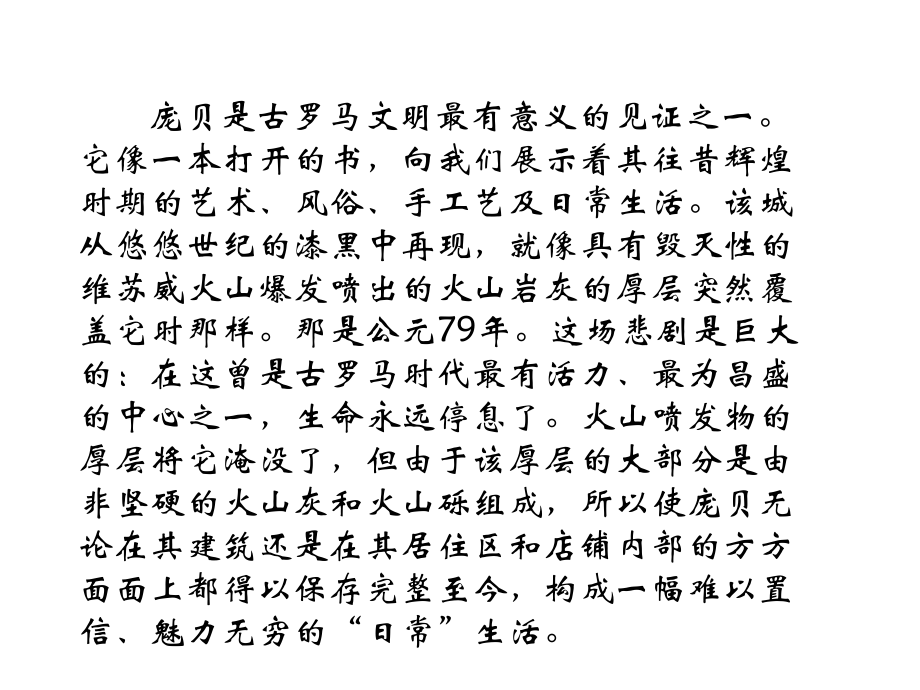 庞贝是古罗马文明最有意义的见证之一。
它像一本打开的书，向我们展示着其往昔辉煌
时期的艺术、风俗、手工艺及日常生活。该城
从悠悠世纪的漆黑中再现，就像具有毁灭性的
维苏威火山爆发喷出的火山岩灰的厚层突然覆
盖它时那样。那是公元79年。这场悲剧是巨大
的：在这曾是古罗马时代最有活力、最为昌盛
的中心之一，生命永远停息了。火山喷发物的
厚层将它淹没了，但由于该厚层的大部分是由
非坚硬的火山灰和火山砾组成，所以使庞贝无
论在其建筑还是在其居住区和店铺内部的方方
面面上都得以保存完整至今，构成一幅难以置
信、魅力无穷的“日常”生活。